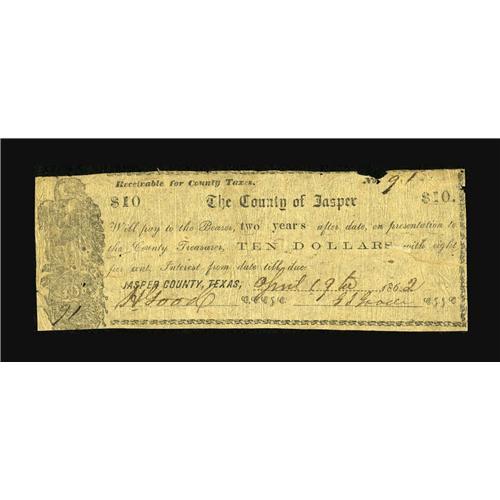 Receivable for County Taxes. No. 91
$10 The County of Jasper $10.
Will pay to the Bearer, two years after date, on presentation to
the County Treasurer, TEN DOLLARS with eight
per cent. Interest from date till due.
JASPER COUNTY, TEXAS, April 19th 1862
91